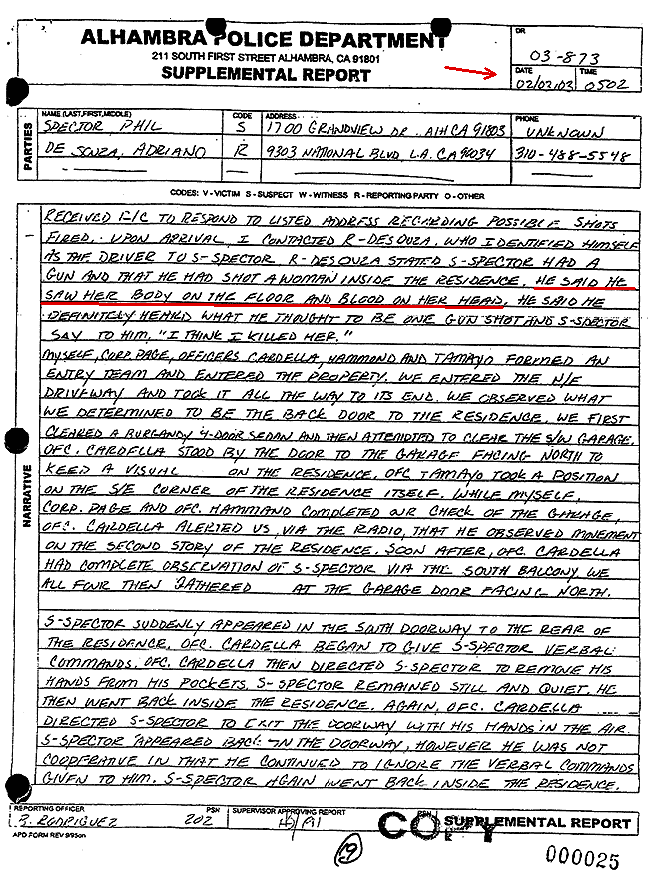 ALHAMBRA POLICE DEPARTMENT
211 SOUTH FIRST STREET ALHAMBRA, CA 91801
SUPPLEMENTAL REPORT
DR
03-873
DATE TIME
02/03/03 0502
PARTIES
NAME (LAST, FIRST, MIDDLE) CODE ADDRESS PHONE
SPECTOR, PHIL S 1700 GRANDVIEW DR. AIH CA 91803 UNKNOWN
DE SOUZA, ADRIANO R 9303 NATIONAL BLVD, L.A. CA 90034 310-488-5548
CODES: V - VICTIM S - SUSPECT W - WITNESS R - REPORTING PARTY O - OTHER
NARRATIVE
RECEIVED R/C TO RESPOND TO LISTED ADDRESS REGARDING POSSIBLE SHOTS
FIRED. UPON ARRIVAL, I CONTACTED R-DESOUZA, WHO IDENTIFIED HIMSELF
AS THE DRIVER TO S-SPECTOR. R-DESOUZA STATED S-SPECTOR HAD A
GUN AND THAT HE HAD SHOT A WOMAN INSIDE THE RESIDENCE. HE SAID HE
SAW HER BODY ON THE FLOOR AND BLOOD ON HER HEAD. HE SAID HE
DEFINITELY HEARD WHAT HE THOUGHT TO BE ONE GUN SHOT AND S-SPECTOR
SAY TO HIM, "I THINK I KILLED HER."
MYSELF, CORP. PAGE, OFFICERS CARDELLA, HAMMOND AND TAMAYO FORMED AN
ENTRY TEAM AND ENTERED THE PROPERTY. WE ENTERED THE N/E
DRIVEWAY AND TOOK IT ALL THE WAY TO ITS END. WE OBSERVED WHAT
WE DETERMINED TO BE THE BACK DOOR TO THE RESIDENCE. WE FIRST
CLEARED A BURGANDY 4-DOOR SEDAN AND THEN ATTEMPTED TO CLEAR THE S/W GARAGE.
OFC. CARDELLA STOOD BY THE DOOR TO THE GARAGE FACING NORTH TO
KEEP A VISUAL ON THE RESIDENCE. OFC TAMAYO TOOK A POSITION
ON THE S/E CORNER OF THE RESIDENCE ITSELF. WHILE MYSELF,
CORP. PAGE AND OFC. HAMMAND COMPLETED OUR CHECK OF THE GARAGE,
OFC. CARDELLA ALERTED US, VIA THE RADIO, THAT HE OBSERVED MOVEMENT
ON THE SECOND STORY OF THE RESIDENCE. SOON AFTER, OFC. CARDELLA
HAD COMPLETE OBSERVATION OF S-SPECTOR VIA THE SOUTH BALCONY. WE
ALL FOUR THEN GATHERED AT THE GARAGE DOOR FACING NORTH.
S-SPECTOR SUDDENLY APPEARED IN THE SOUTH DOORWAY TO THE REAR OF
THE RESIDENCE. OFC. CARDELLA BEGAN TO GIVE S-SPECTOR VERBAL
COMMANDS. OFC. CARDELLA THEN DIRECTED S-SPECTOR TO REMOVE HIS
HANDS FROM HIS POCKETS. S-SPECTOR REMAINED STILL AND QUIET. HE
THEN WENT BACK INSIDE THE RESIDENCE. AGAIN, OFC. CARDELLA
DIRECTED S-SPECTOR TO EXIT THE DOORWAY WITH HIS HANDS IN THE AIR.
S-SPECTOR APPEARED BACK IN THE DOORWAY, HOWEVER HE WAS NOT
COOPERATIVE IN THAT HE CONTINUED TO IGNORE THE VERBAL COMMANDS
GIVEN TO HIM. S-SPECTOR AGAIN WENT BACK INSIDE THE RESIDENCE.
REPORTING OFFICER PSN SUPERVISOR APPROVING REPORT PSN
RODRIGUEZ 202
COPY
SUPPLEMENTAL REPORT
APD FORM REV 9/95
19
000025